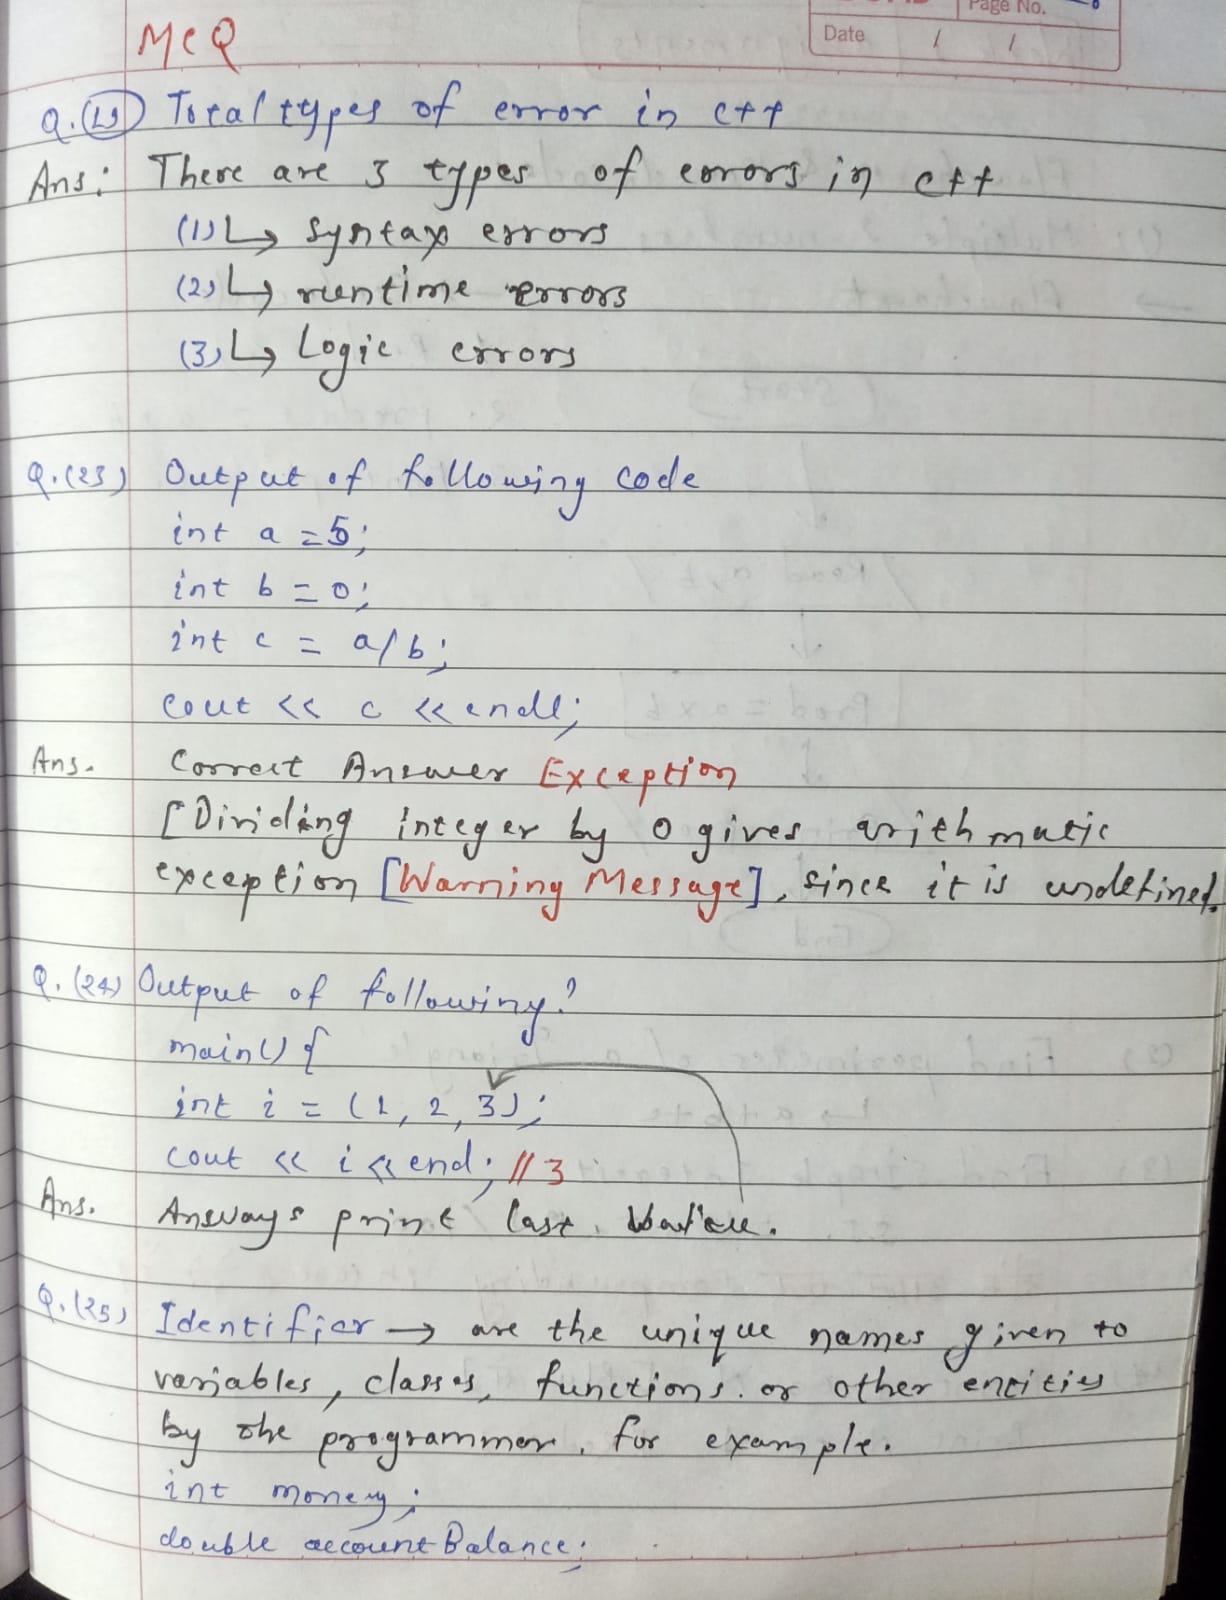 Page No.
Date / /
MCQ
Q.(19) Total types of error in c++
Ans: There are 3 types of errors in c++
(1) ↳ Syntax errors
(2) ↳ runtime errors
(3) ↳ Logic errors
Q.(23) Output of following code
int a = 5;
int b = 0;
int c = a/b;
cout << c << endl;
Ans. Correct Answer Exception
[Dividing integer by 0 gives arithmatic
exception [Warning Message], since it is undefined.
Q.(24) Output of following?
main() {
int i = (1, 2, 3);
cout << i << end; // 3
Ans. print last
Q.(25) Identifier → are the unique names given to
variables, classes, functions. or other entities
by the programmer. for example.
int money;
double accountBalance;